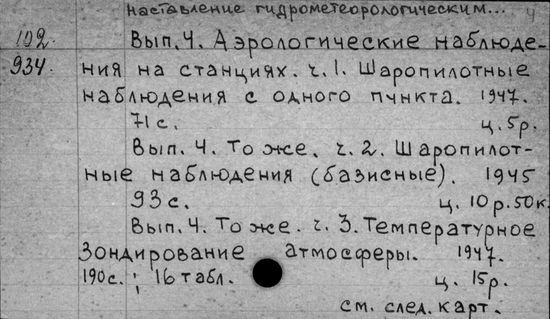 наставление гидрометеорологическим... 4
102. Вып. 4. Аэрологические наблюде-
934. ния на станциях. ч. 1. Шаропилотные
наблюдения с одного пункта. 1947.
71 с. ц. 5 р.
Вып. 4. То же. ч. 2. Шаропилот-
ные наблюдения (базисные). 1945
93 с. ц. 10 р. 50 к.
Вып. 4. То же. ч. 3. Температурное
зондирование атмосферы. 1947.
190 с.; 16 табл. ц. 15 р.
см. след. карт.